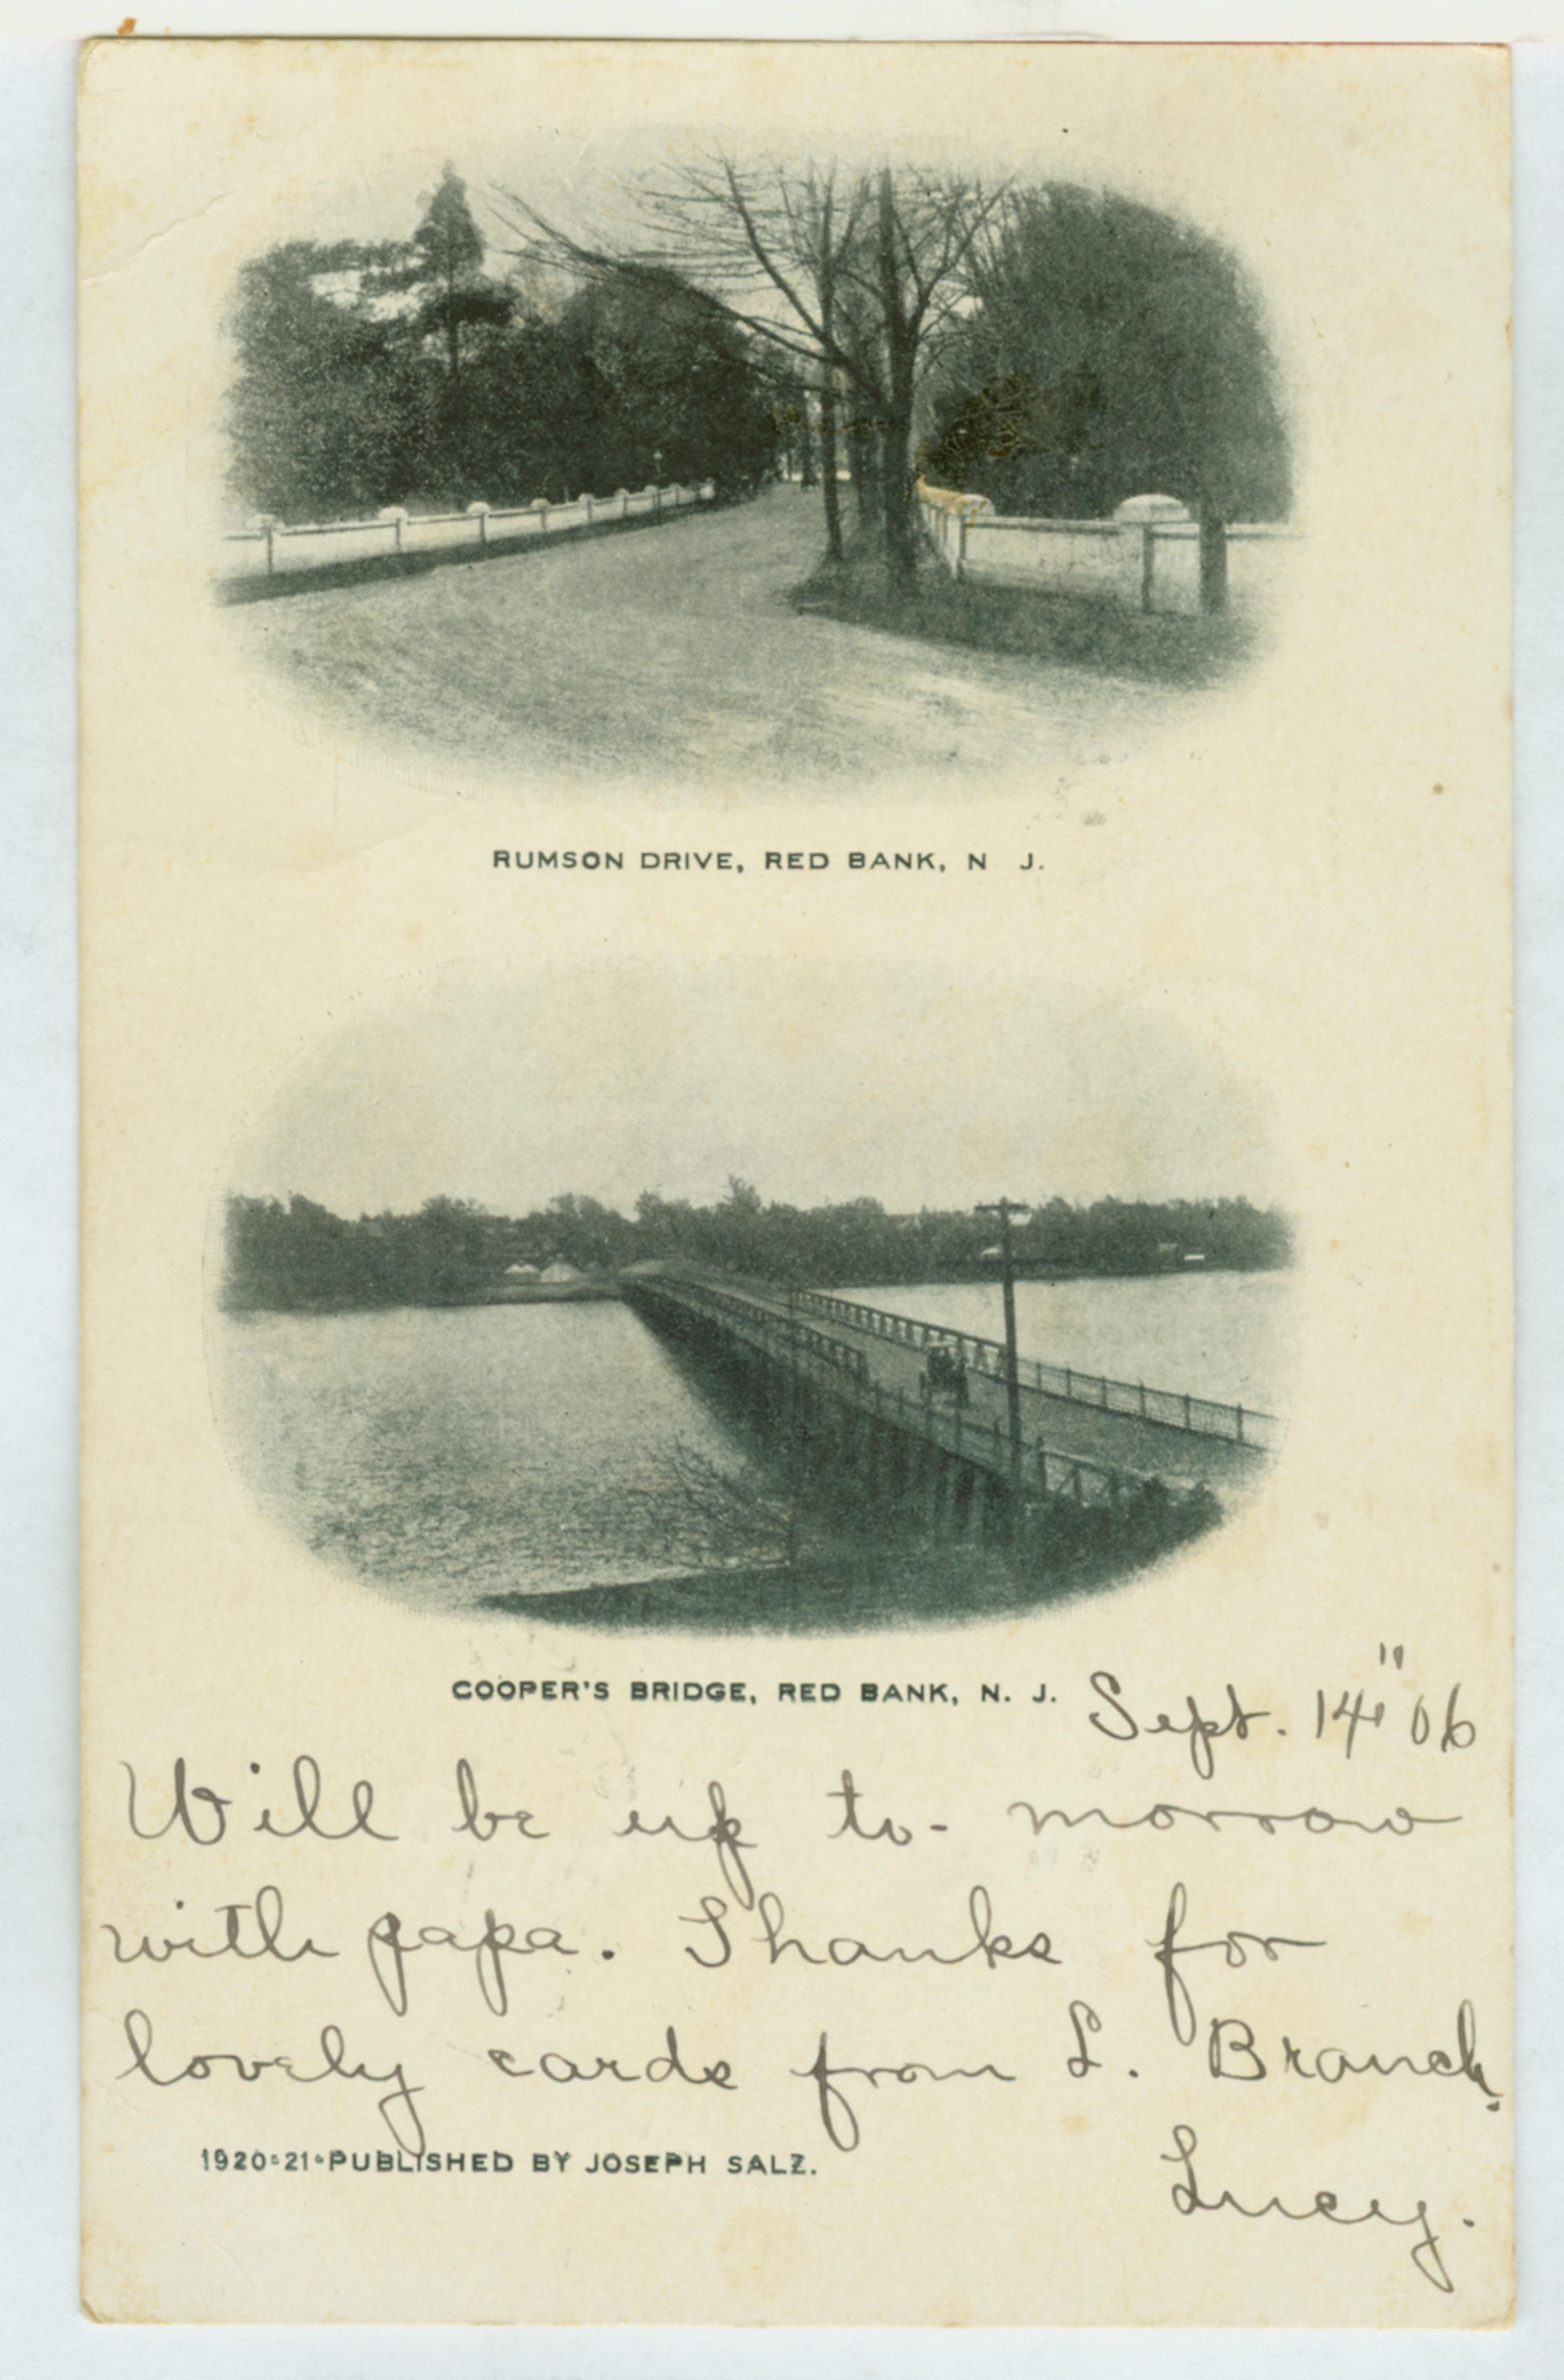 RUMSON DRIVE, RED BANK, N J.
COOPER'S BRIDGE, RED BANK, N. J.
Sept. 14" 06
Will be up to-morrow
with papa. Thanks for
lovely cards from L. Branch.
1920-21-PUBLISHED BY JOSEPH SALZ.
Lucy.